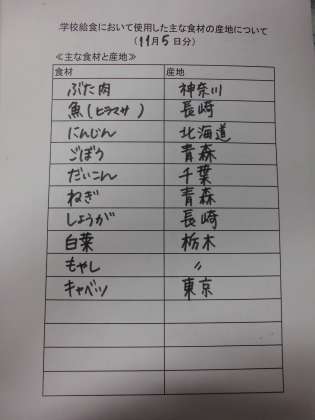 学校給食において使用した主な食材の産地について
(11月5日分)
≪主な食材と産地≫
食材 産地
ぶた肉 神奈川
魚(ヒラマサ) 長崎
にんじん 北海道
ごぼう 青森
だいこん 千葉
ねぎ 青森
しょうが 長崎
白菜 栃木
もやし 〃
キャベツ 東京